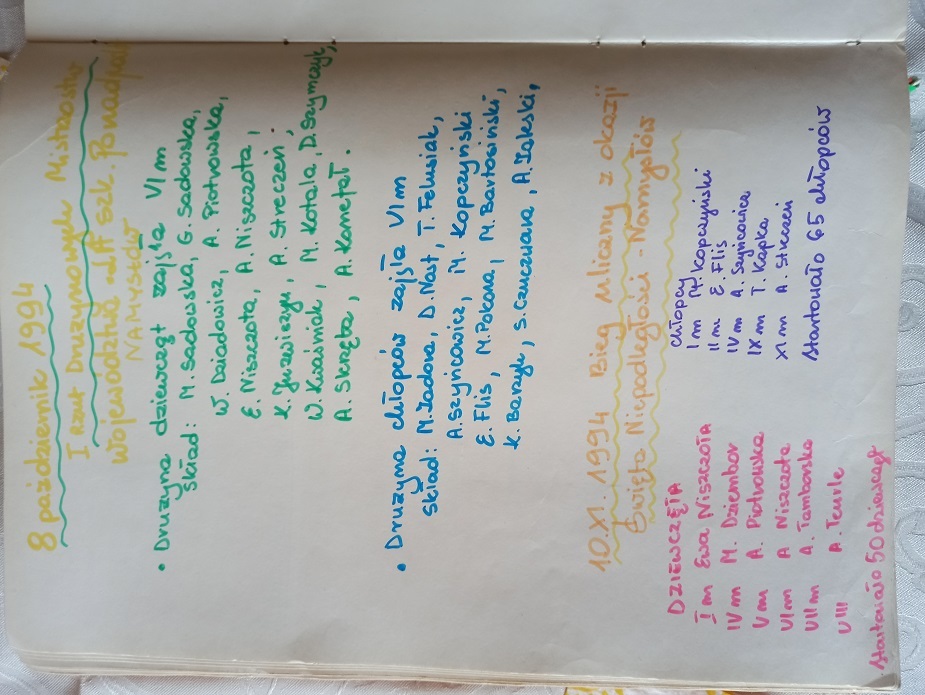 8 październik 1994
I rzut Drużynowych Mistrzostw
Województwa LA szk. Ponadpod
NAMYSŁÓW
• Drużyna dziewcząt zajęła VI m
Skład: M. Sadowska, G. Sadowska,
W. Dziadowicz, A. Piotrowska,
E. Niszczota, A. Niszczota,
K. A. Streczeń,
W. Kuśniak, M. Kotala, D. Szymczyk,
A. Skrzęta, A. Kometał.
• Drużyna chłopców zajęła VI m
Skład: M. D. Nast, T. Felusiak,
A. Szyńcowicz, M. Kopczyński
E. Flis, M. Pakana, M. Bartosiński,
K. Barzyk, S. Czuczwara, A. Jakski,
10.XI.1994 Bieg Uliczny z okazji
Święta Niepodległości - Namysłów
DZIEWCZĘTA
I m Ewa NISZCZOTA
IV m M. Dziembor
V m A. Piotrowska
VI m A Niszczota
VII m A. Tamborska
VIII A. Teurle
Startowało 50 dziewcząt
Chłopcy
I m M. Kopczyński
II m E. Flis
IV m A. Szyńcowicz
IX m T. Kapka
XI m A. Streczeń
Startowało 65 chłopców